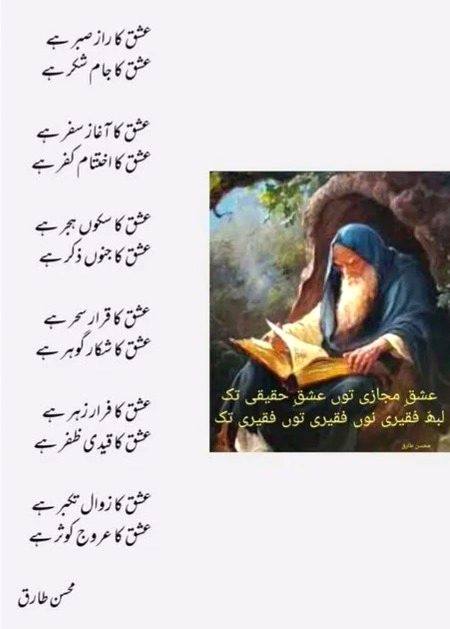 عشق کا راز صبر ہے
عشق کا جام شکر ہے
عشق کا آغاز سفر ہے
عشق کا اختتام کفر ہے
عشق کا سکوں ہجر ہے
عشق کا جنوں ذکر ہے
عشق کا قرار سحر ہے
عشق کا شکار گوہر ہے
عشق کا فرار زہر ہے
عشق کا قیدی ظفر ہے
عشق کا زوال تکبر ہے
عشق کا عروج کوثر ہے
محسن طارق
عشق مجازی توں عشق حقیقی تک
لبھ فقیری نوں فقیری توں فقیری تک
محسن طارق